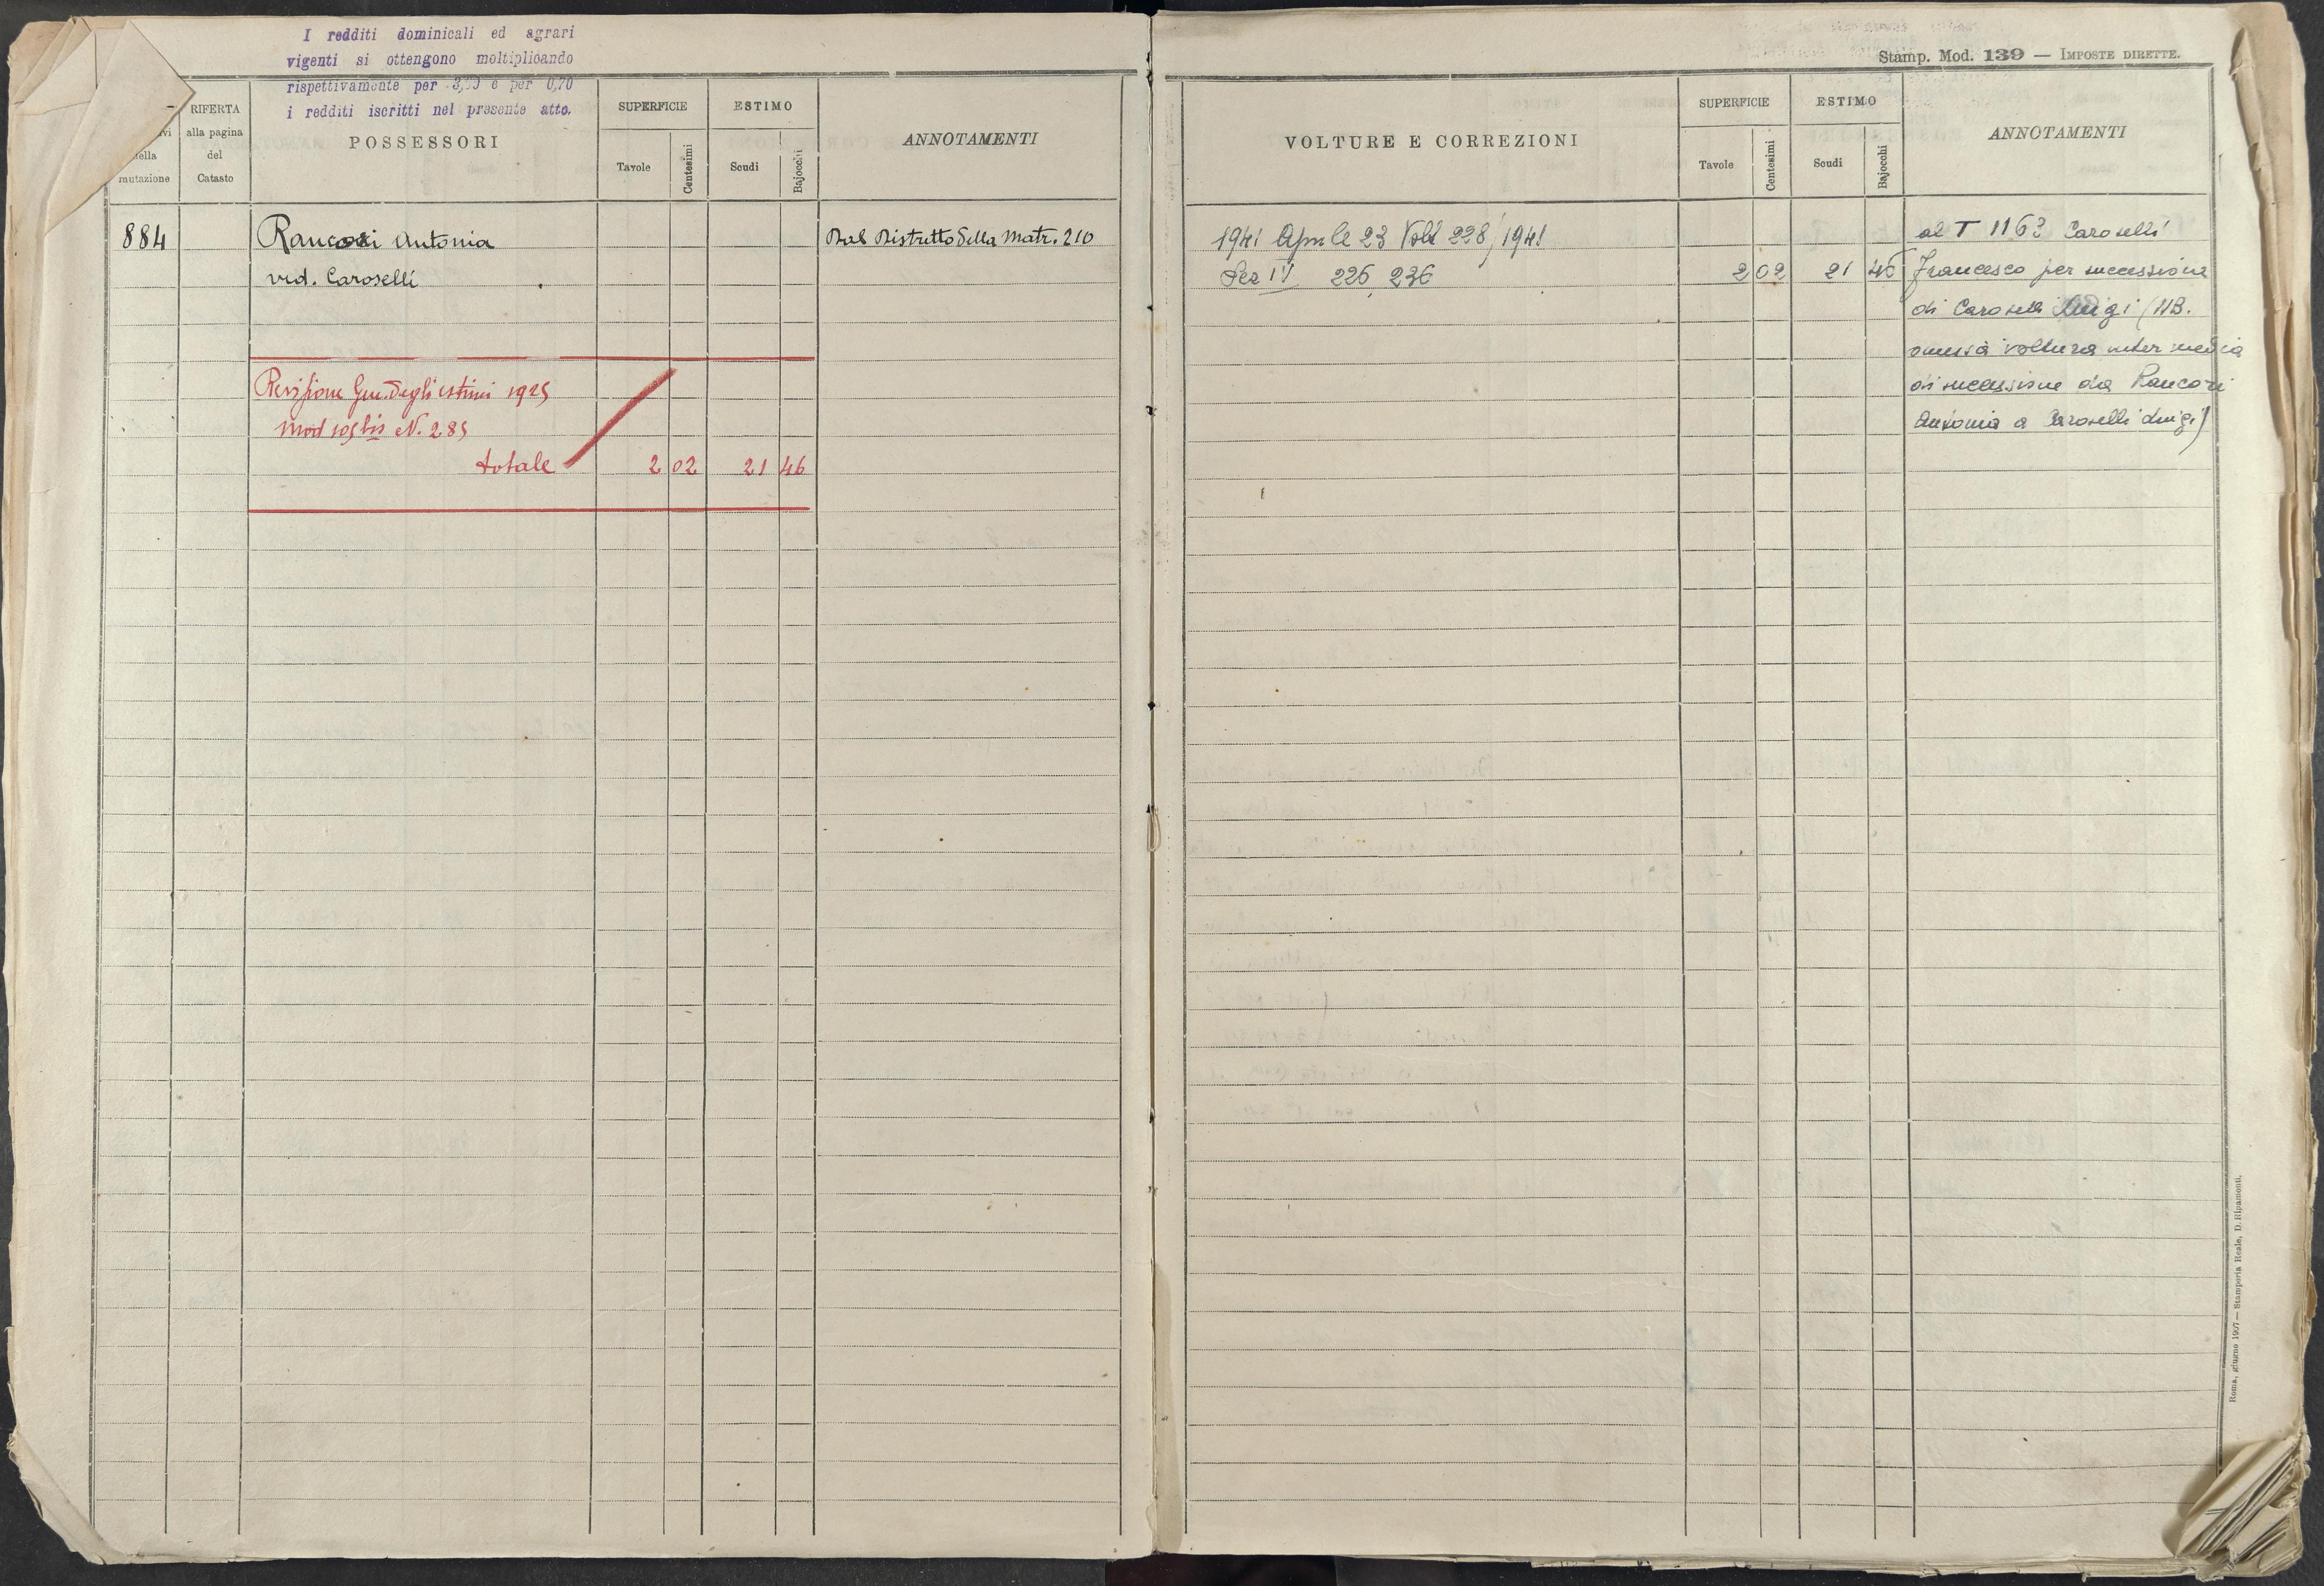 I redditi dominicali ed agrari
vigenti si ottengono moltiplicando
rispettivamente per e per 0,70
i redditi iscritti nel presente atto.
della
mutazione
RIFERTA
alla pagina
del
Catasto
POSSESSORI
SUPERFICIE
Tavole
Centesimi
ESTIMO
Scudi
Bajocchi
ANNOTAMENTI
884 Rancori Antonia Dal Ristretto della Matr. 210
ved. Caroselli
Revisione Gen. degli estimi 1925
Mod 105 bis N. 285
totale 2 02 21 46
Stamp. Mod. 139 — IMPOSTE DIRETTE.
VOLTURE E CORREZIONI
SUPERFICIE
Tavole
Centesimi
ESTIMO
Scudi
Bajocchi
ANNOTAMENTI
1941 Aprile 23 Volt 228/1941 al T 1163 Caroselli
Sez IV 226, 236 2 02 21 46 Francesco per successione
di Caroselli Luigi (NB.
omessa voltura intermedia
di successione da Rancori
Antonia a Caroselli Luigi)
Roma, giugno 1907 — Stamperia Reale, D. Ripamonti.